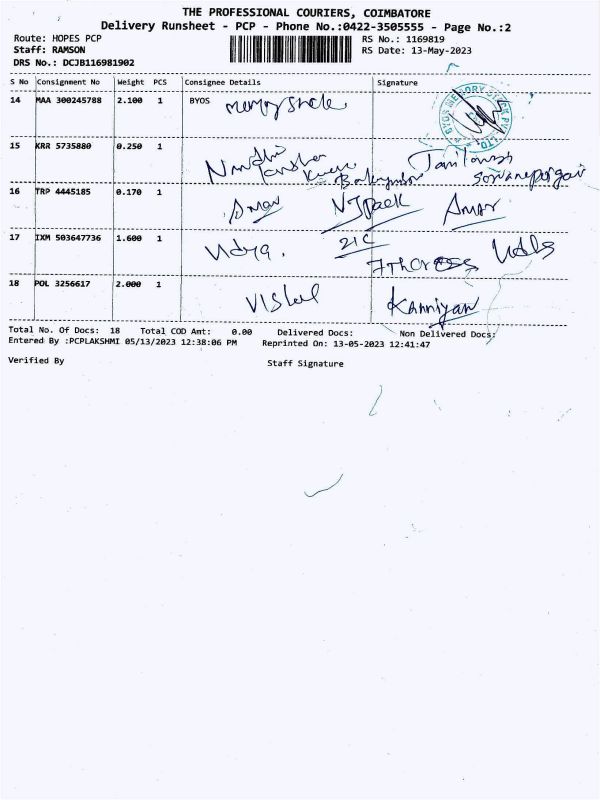 THE PROFESSIONAL COURIERS, COIMBATORE
Delivery Runsheet - PCP - Phone No.:0422-3505555 - Page No.:2
Route: HOPES PCP RS No.: 1169819
Staff: RAMSON RS Date: 13-May-2023
DRS No.: DCJB116981902
S No Consignment No Weight PCS Consignee Details Signature
14 MAA 300245788 2.100 1 BYOS
15 KRR 5735880 0.250 1
16 TRP 4445185 0.170 1 Amar
17 IXM 503647736 1.600 1 Udya. 21C
18 POL 3256617 2.000 1 Kanniyan
Total No. Of Docs: 18 Total COD Amt: 0.00 Delivered Docs: Non Delivered Docs:
Entered By :PCPLAKSHMI 05/13/2023 12:38:06 PM Reprinted On: 13-05-2023 12:41:47
Verified By Staff Signature